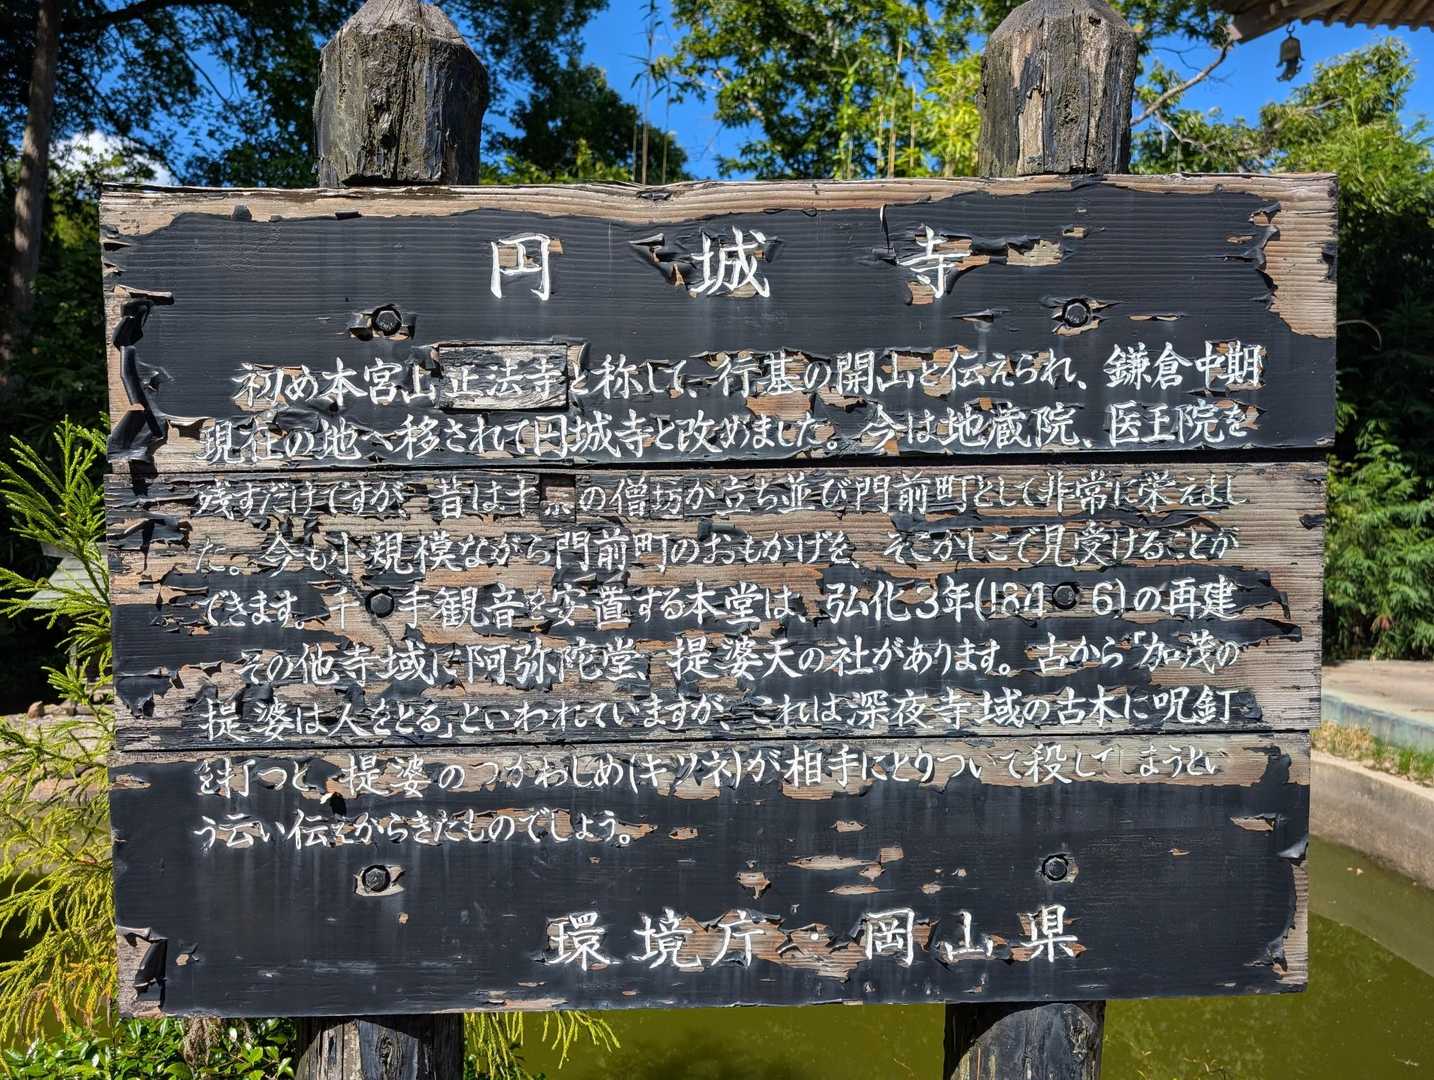 円城寺
初め本宮山正法寺と称して、行基の開山と伝えられ、鎌倉中期
現在の地へ移されて円城寺と改めました。今は地蔵院、医王院を
残すだけですが、昔は十の僧坊が立ち並び門前町として非常に栄えまし
た。今も小規模ながら門前町のおもかげを、そこかしこで見受けることが
できます。千手観音を安置する本堂は、弘化3年(1846)の再建
その他寺域に阿弥陀堂、提婆天の社があります。古から「加茂の
提婆は人をとる」といわれていますが、これは深夜寺域の古木に呪釘
を打つと、提婆のつかわしめ(キツネ)が相手にとりついて殺してしまうとい
う云い伝えからきたものでしょう。
環境庁・岡山県